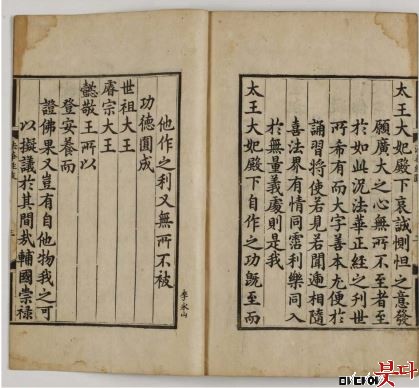 太王大妃殿下哀誠惻怛之意發
願廣大之心無所不至者至
於如此況法華正經之刊世
所希有而大字善本尤便於
誦習將使若見若聞遞相隨
喜法界有情同霑利樂同入
於無量義處則是我
太王大妃殿下自作之功旣至而
他作之利又無所不被
功德圓成
世祖大王
睿宗大王
懿敬王所以
登安養而
證佛果又豈有自他物我之可
以擬議於其間哉輔國崇祿
李永山
미디어붓다